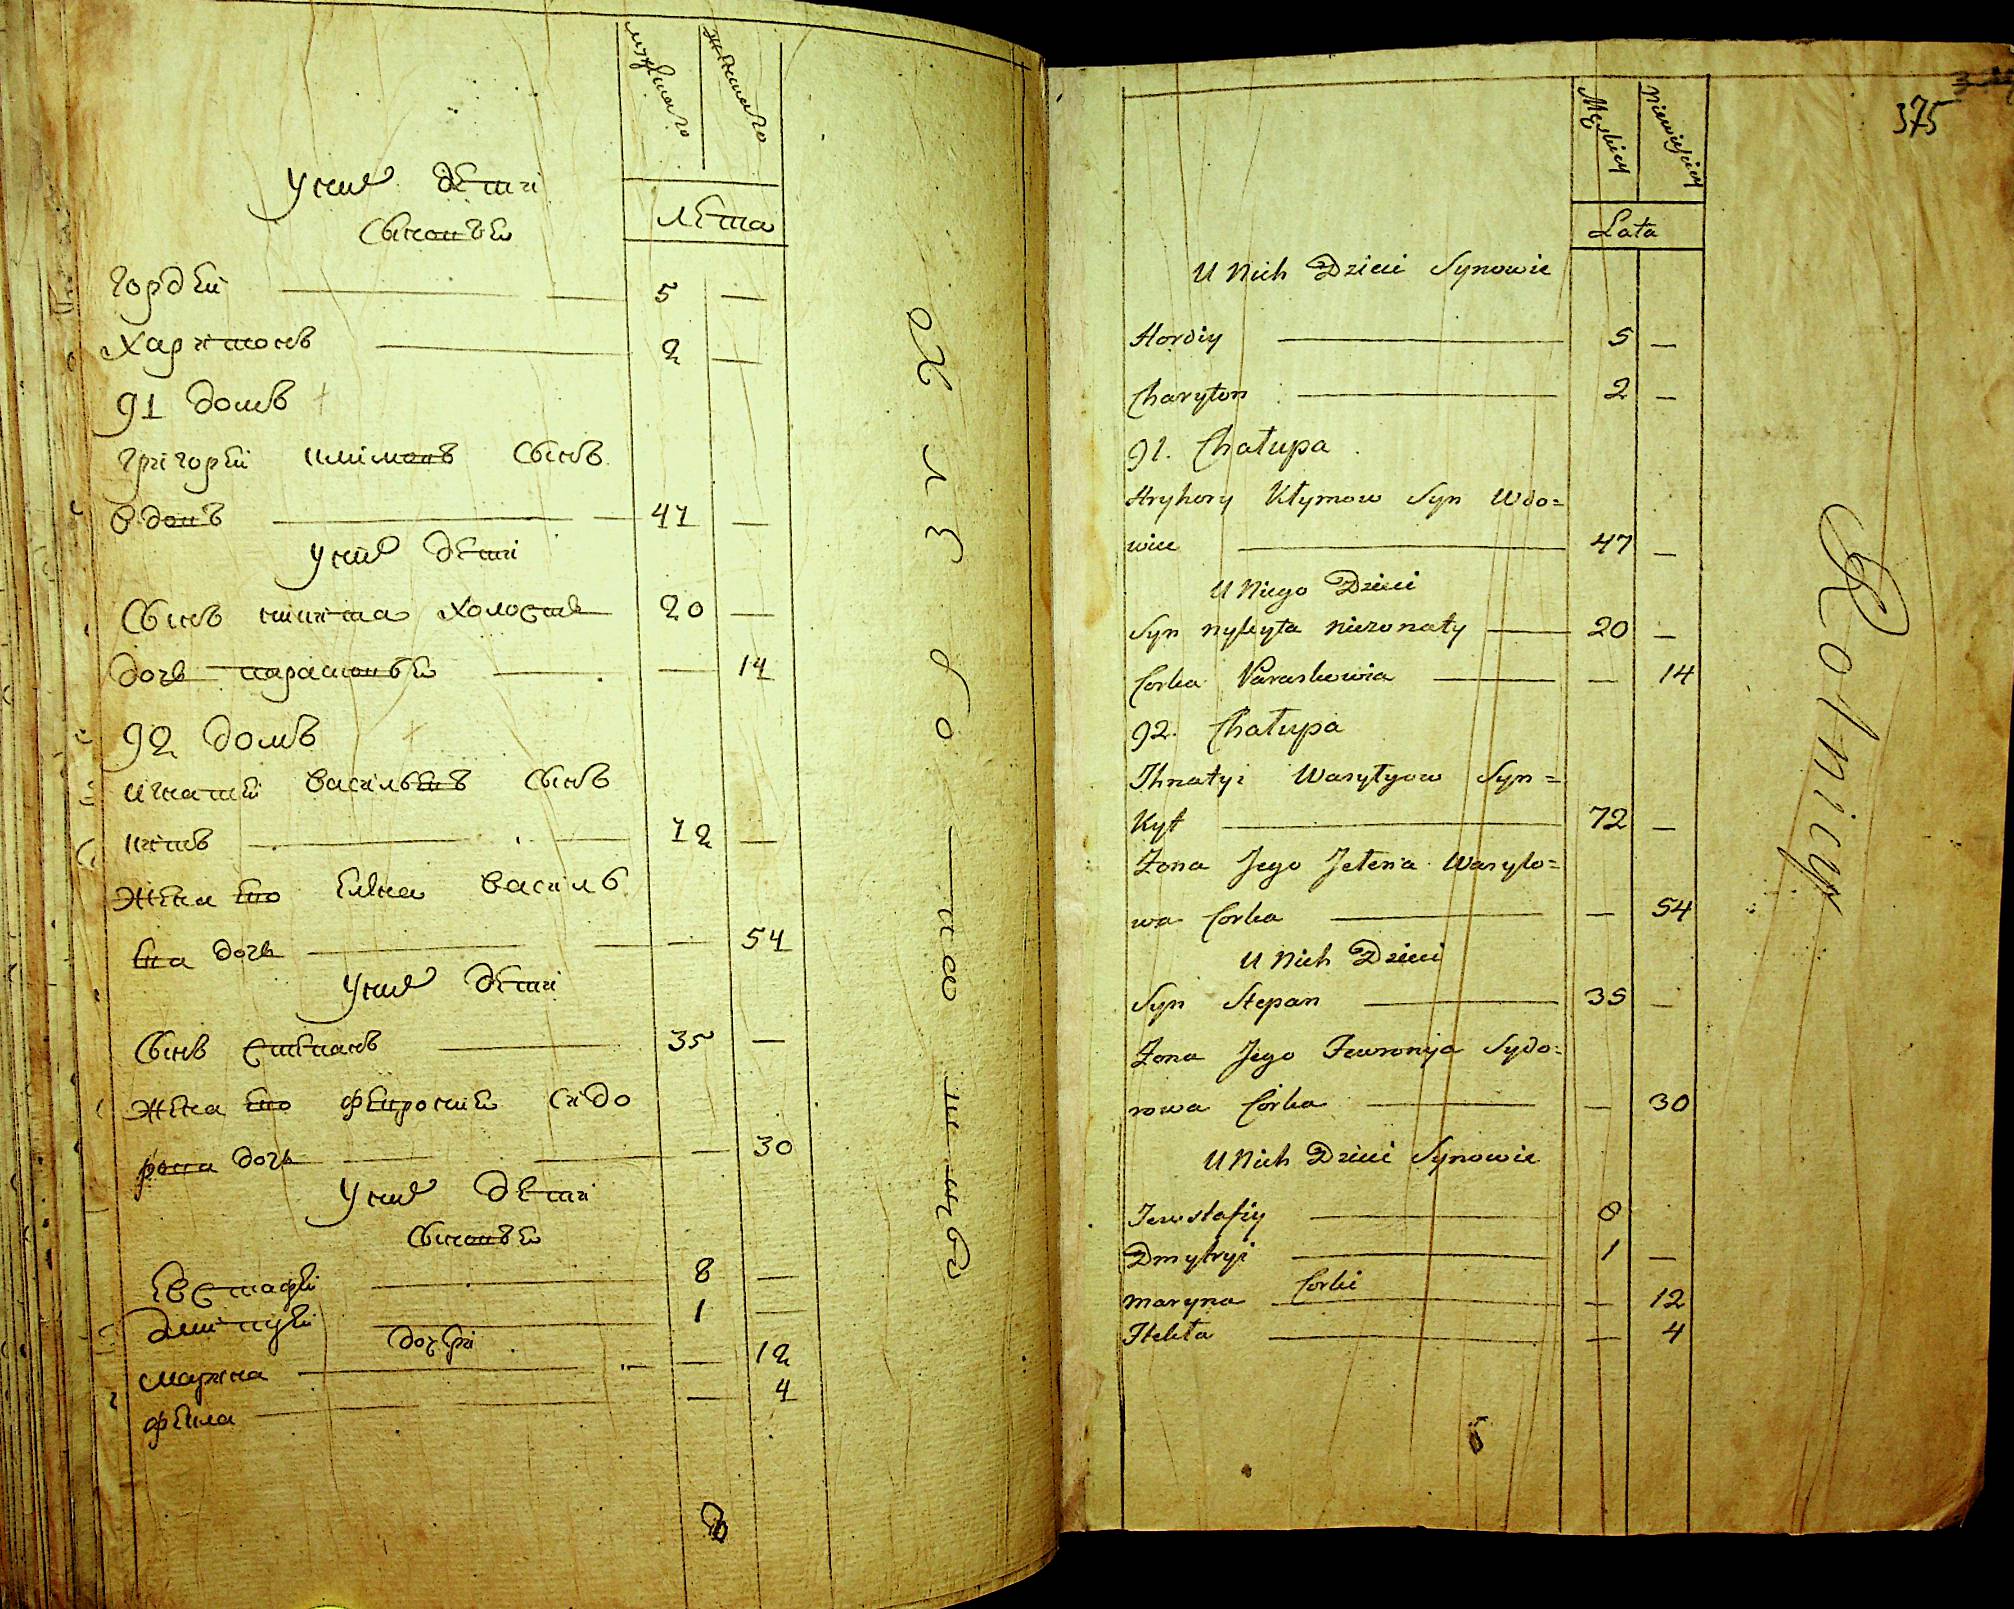 мужеска женска
Лета
У них дети
Сыновеи
Гордеи — 5 —
Харитонъ — 2 —
91 домъ
Григореи Климовъ Сынъ
вдовъ — 47 —
У нив дети
Сынъ никита холостъ 20 —
дочь парасковея — — 14
92 домъ
Игнатеи васильевъ Сынъ
китъ — 72 —
жена ево елена василь
ева дочь — — 54
У них дети
Сынъ степанъ — 35 —
жена ево феврония сидо
рова дочь — — 30
У них дети
Сыновеи
Евстафеи — 8 —
дмитреи — 1 —
дочери
марина — — 12
фекла — — 4
Хлѣбопашцы
375
Męskiey Niewieściey
Lata
U Nich Dzieci Synowie
Hordiy — 5 —
Charyton — 2 —
91. Chałupa
Hryhory Kłymow Syn Wdo=
wiec — 47 —
U Niego Dzieci
Syn Nykyta Niezonaty — 20 —
Corka Paraskewia — — 14
92. Chałupa
Ihnatyi Wasylyow Syn =
Kyt — 72 —
Zona Jego Jełena Wasylo=
wa Corka — — 54
U Nich Dzieci
Syn Stepan — 35 —
Zona Jego Fewronija Sydo=
rowa Corka — — 30
U Nich Dzieci Synowie
Jewstafiy — 8
Dmytryi — 1 —
Corki
Maryna — — 12
Tekła — — 4
Rolnicy